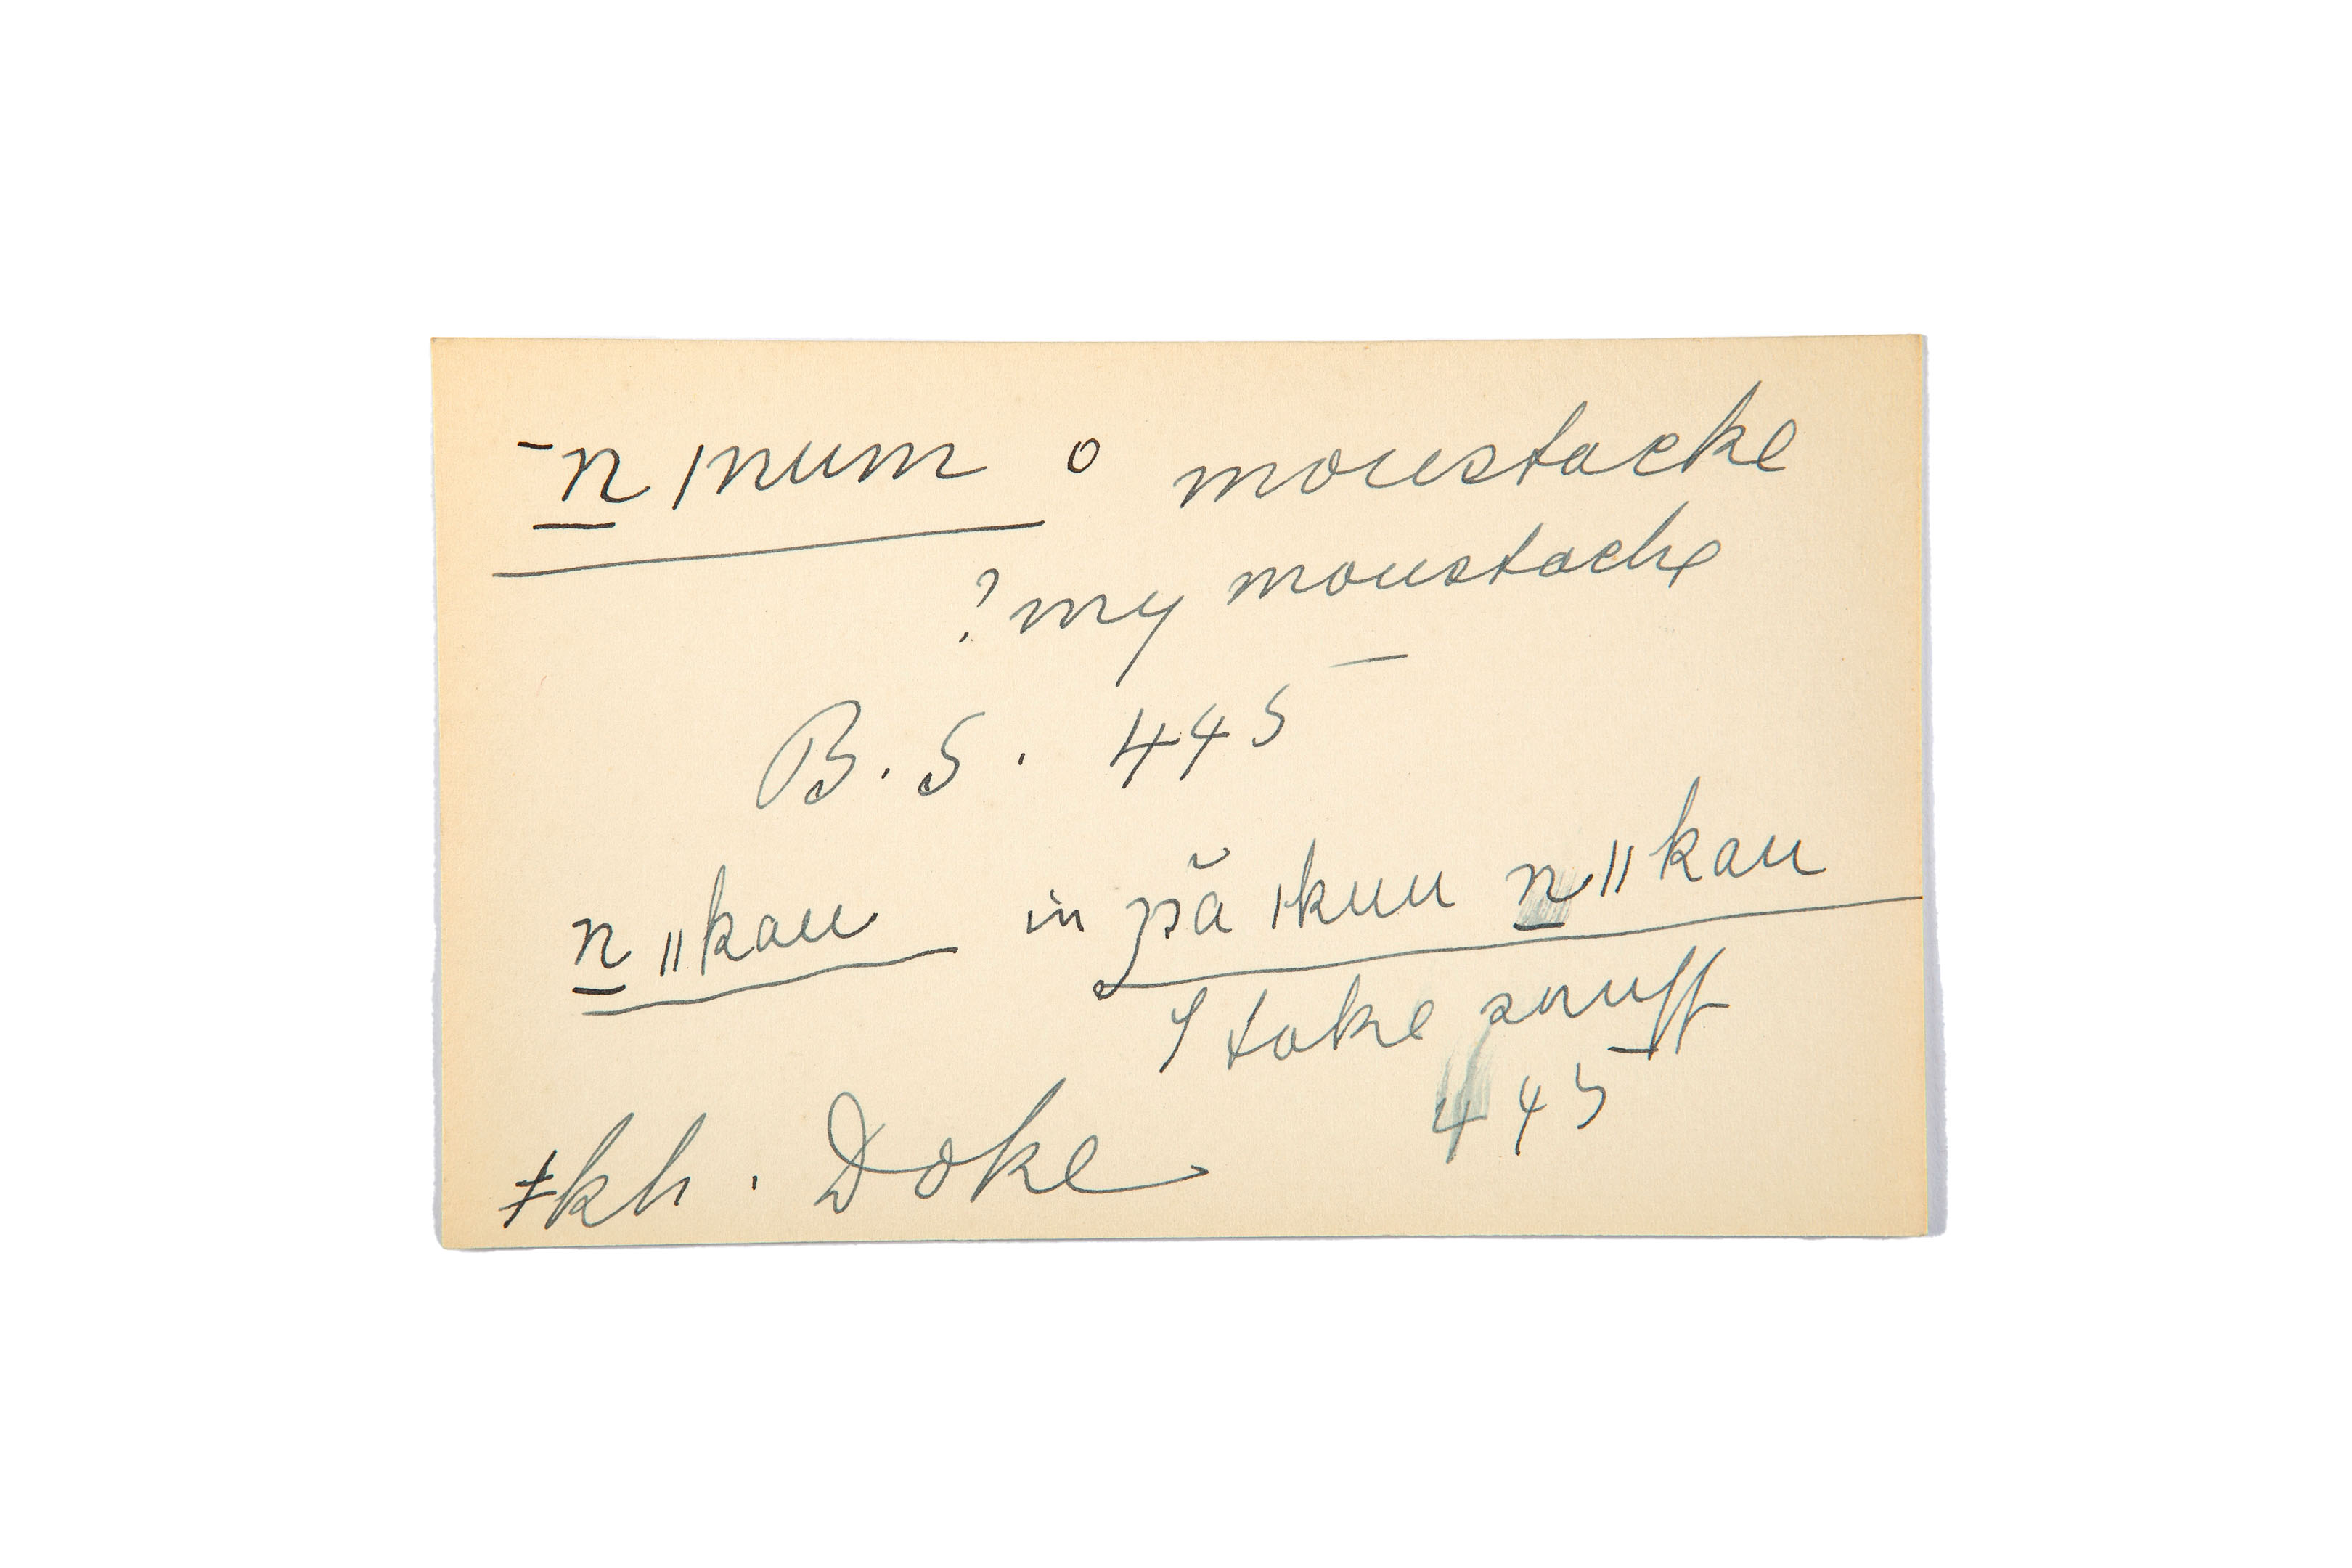 ¯n̲ ǀnum o moustache
? my moustache
B. S. 445
n̲ ǁkau in pă ǀkuu n̲ ǁkau
I take snuff
445
ǂkh. Doke